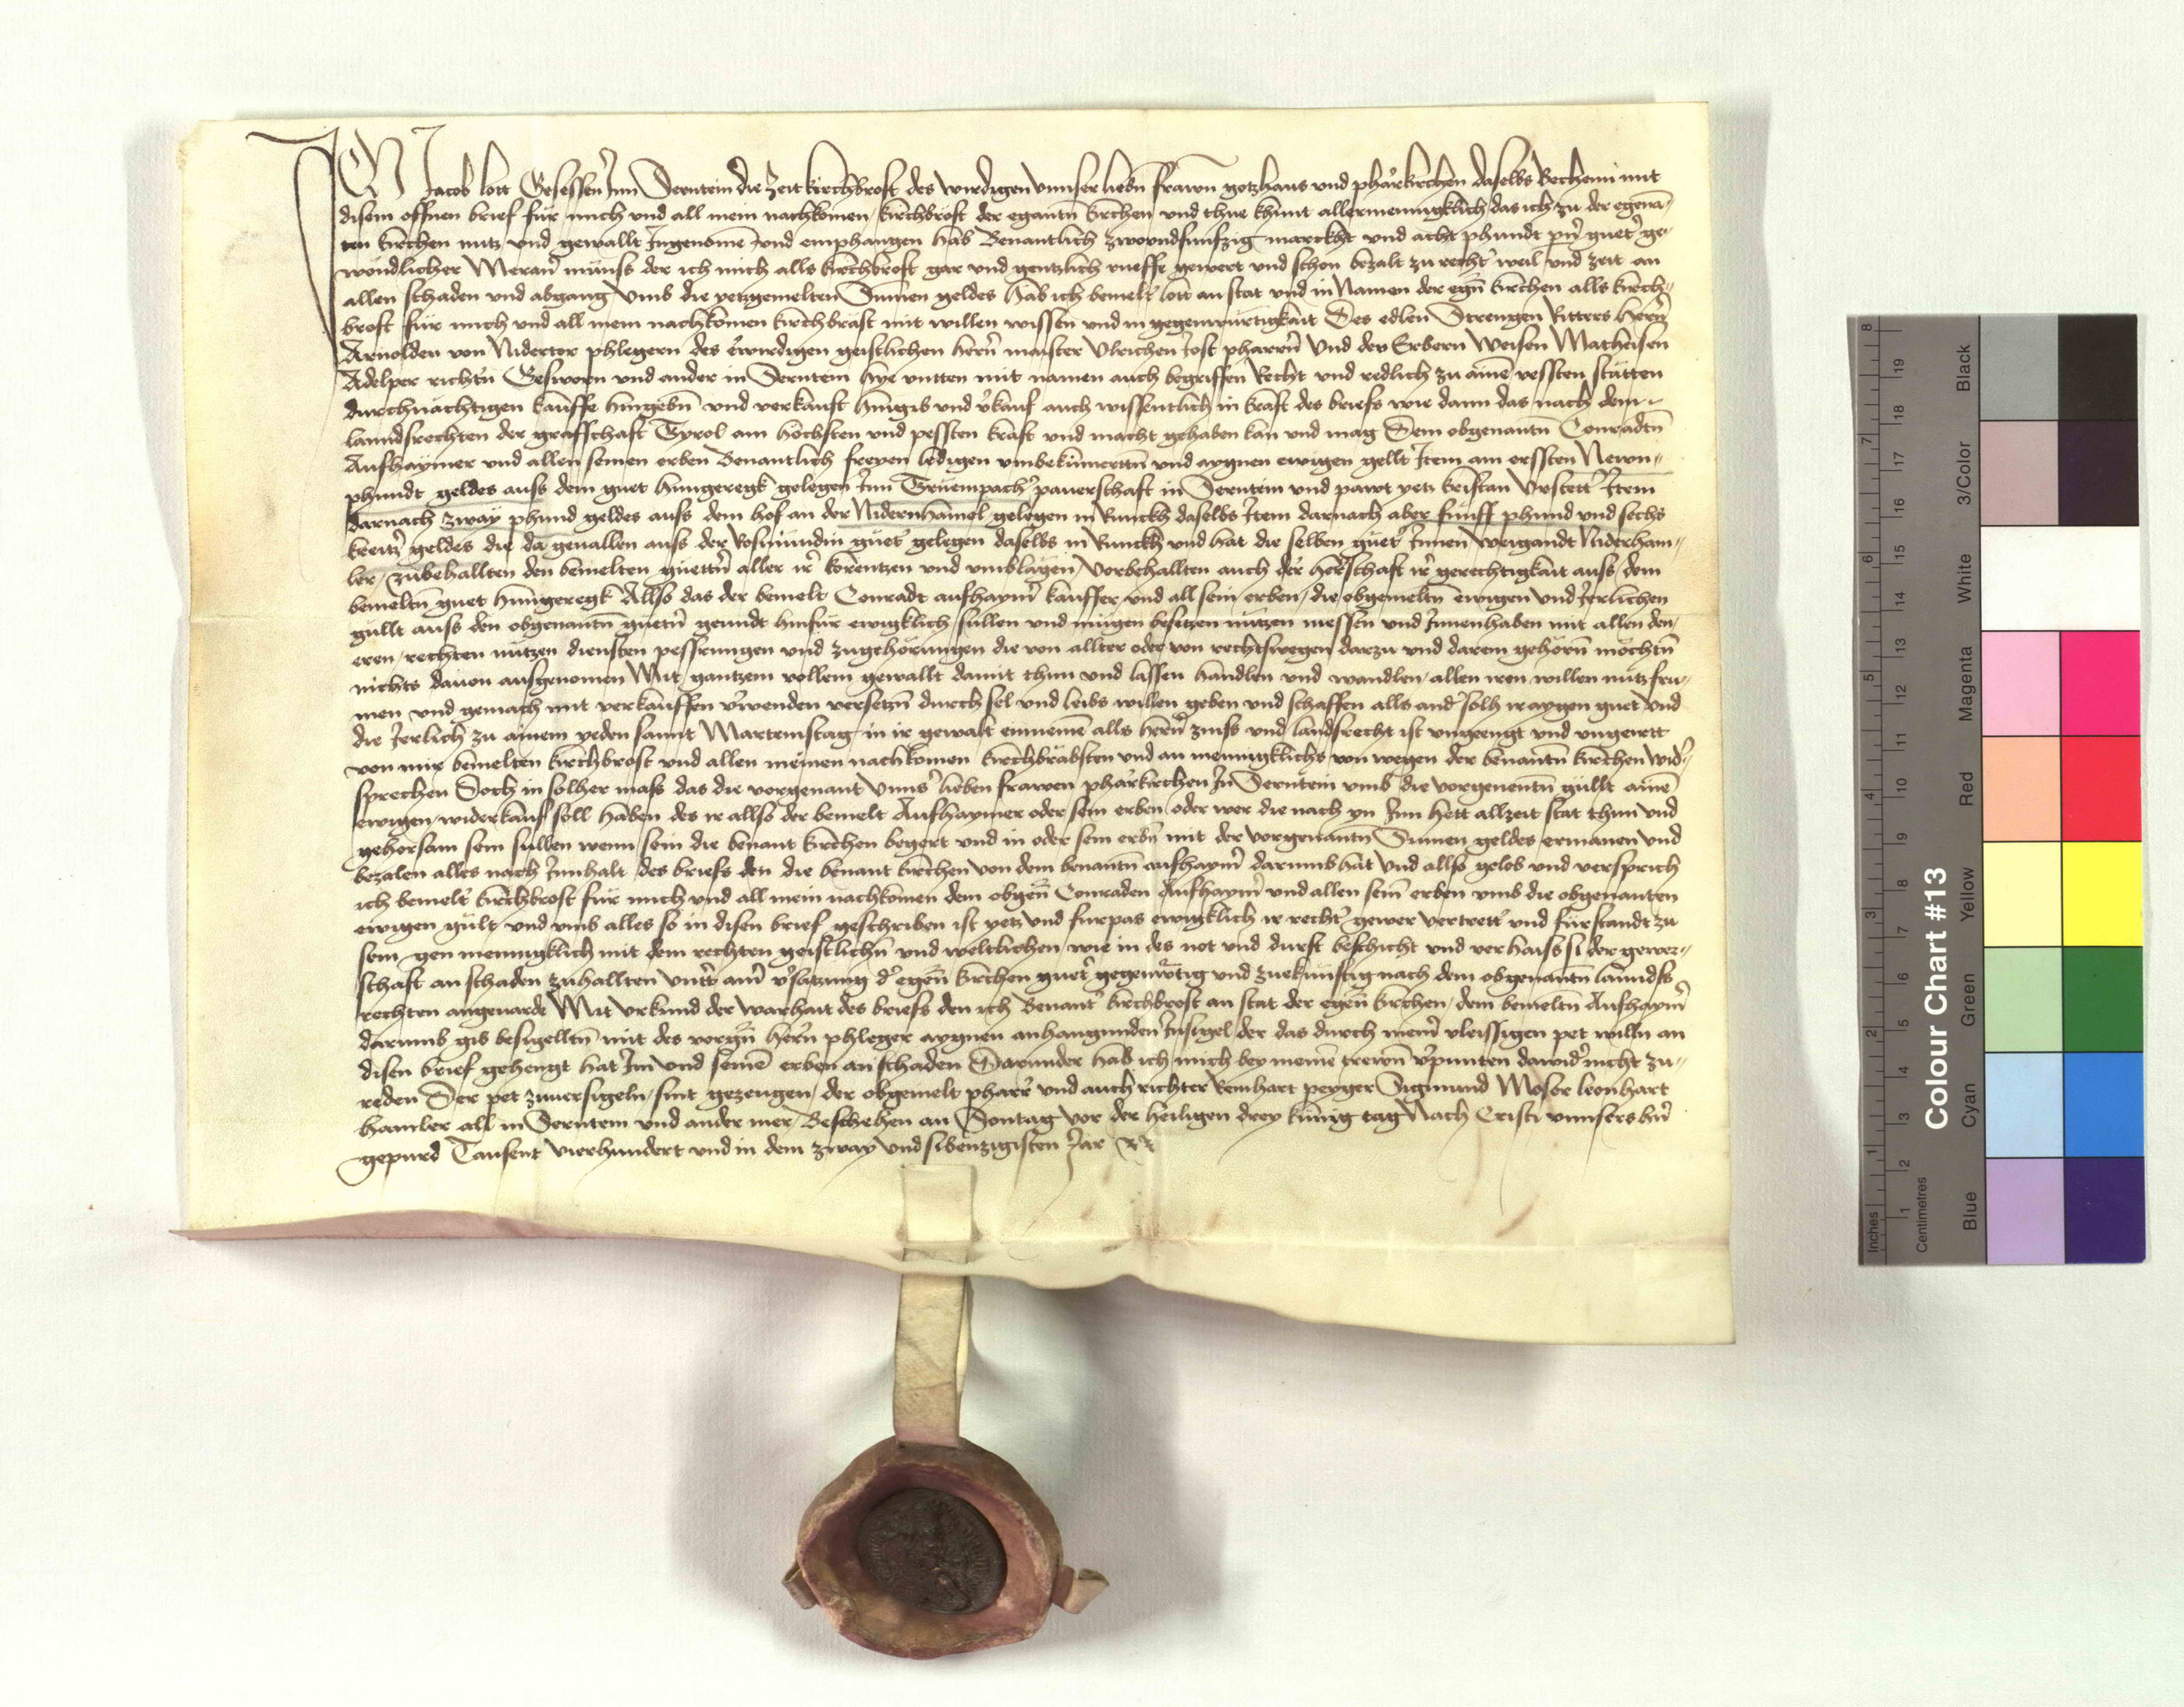 ICh Jacob lott Gesessen Inn Serntein die zeit kirchbrost des wirdigen unnser liebn frawn gotzhaus und pharrkirchen daselbs Bechenn mit
disem offnen brief für mich und all mein nachkomen kirchbrost der egantn kirchen und thue khunt allermenigklich das ich zu der egena-
ten kirchen nutz und gewallt Ingenomē und emphangen hab Benantlich zwoundfunfzig marckht und acht phundt pn̄ gueter ge-
wondlicher Meraner münss der ich mich alls kirchbrost gar und gentzlich gewert und schon bezalt zu recht weil und zeit an
allen schaden und abgang Umb die yetzgemelten Sumen geldes hab ich bemelt lott an stat und in Namen der egn̄ kirchen alls kirch-
brost für mich und all mein nachkomen kirchbräst mit willen wissen und in gegenwürtigkait Des edlen Strengen Ritters hern̄
Arnolden von Nidertor phlegern des erwirdigen geistlichen hern̄ maister Ulrichen Jost pharrn̄ Und der Erbern Weisen Matheisen
Adelper richtn̄ Gesworn und ander in Serntein hye untten mit namen auch begriffen Recht und redlich zu ainē vessten stätten
durchnächtigen kauffe hingebn̄ und verkauft hingib und v̄kauf auch wissentlich in kraft des briefs wie dann das nach dem
lanndsrechten der grafschaft Tyrol am höchsten und pessten kraft und macht gehaben kan und mag Dem obgenantn̄ Conradtn̄
Aufhaymer und allen seinen erben Benantlich freyen ledigen umbekümerttn̄ und aygnen ewigen gellt Item am erssten Newn-
phundt geldes auss dem guet Hungeregk gelegen Inn pauerschaft in Serntein und pawt yetz kristan Item
darnach zway phund geldes auss dem hof an der Nidernhamel gelegen in Runckh daselbs Item darnach aber funff phund und sechs
kreitzr̄ geldes die da geuallen auss der guet gelegen daselbs in Runckh und hat die selben guet Innen Weigandt Niderham-
ler zubehallten den bemelten guettr̄n aller ir korentzen und umblagen Vorbehallten auch der herschaft ir gerechtigkait auss dem
bemeltn̄ guet Hungeregk Allso das der bemelt Conradt aufhaymr̄ kauffer und all sein erben die obgemeltn̄ ewigen und Jerlichen
gullt auss den obgenantn̄ guetr̄n genndt hinfür ewigklich süllen und mügen besitzen nützen niessen und Innenhaben mit allen den
eren rechten nützen diensten pessrungen und zugehörungen die von allter oder von rechtswegen darzu und darein gehörn̄ möchtn̄
nichts dauon ausgenomen Mit gantzem vollem gewallt damit thun und lassen handlen und wandlen allen iren willen nutz fru-
men und gemach mit verkauffen v̄wenden versetzn̄ durch sel und leibs willen geben und schaffen alls and̄ solh ir aygen guet und
die Jerlich zu ainem yeden sannt Martenstag in ir gewalt einnemē alls hern̄ zinss und landsrecht ist ungeengt und ungeirrt
von mir bemelten kirchbrost und allen meinen nachkomen kirchbräbsten und an mennigklichs von wegen der benantn̄ kirchen wid̄-
sprechen Doch in solher mass das die vorgenant Unns̄ lieben frawen pharrkirchen In Serntein umb die vorgenentn̄ güllt ainē
ewigen widerkauf soll haben des ir allso der bemelt Aufhaymer oder sein erben oder wer die nach yn Inn hett allzeit stat thun und
gehorsam sein süllen wenn sein die benant kirchen begert und in oder sein erbn̄ mit der vorgenantn̄ Sumen geldes ermanen und
bezalen alles nach Innhalt des briefs den die benant kirchen von dem benantn̄ aufhaymr̄ darumb hat Und allso gelob und versprich
ich bemelt kirchbrost für mich und all mein nachkomen dem obgen̄ Conraden Aufhaymr̄ und allen sein̄ erben umb die obgenanten
ewigen gült und umb alles so in disen brief geschriben ist yetz und fürpas ewigklich ir recht gewer vertrett und fürstandt zu
sein gen mennigklich mit dem rechten geistlichn̄ und weltlichen wie in des not und durft beschicht und verhaiss si der gewer-
schaft an schaden zuhallten untr̄ v̄satzung d̄ egen̄ kirchen guet gegenwr̄tig und zuekünftig nach dem obgenantn̄ lanndss
rechten angeuarde Mit urkund der warhait des briefs den ich Benant kirchbrost an stat der egen̄ kirchen dem bemeltn̄ Aufhaymr̄
darumb gib besigelltn̄ mit des vorgn̄ hern̄ phleger aygnen anhangunden Insigel der das durch mein̄ vleissigen pet willn̄ an
disen brief gehengt hat Im und seinē erben an schaden Darunder hab ich mich bey meinē trewn̄ v̄punten dawid̄ nicht zu-
reden Der pet zuuersigeln sint gezeugen der obgemelt pharr̄ und auch richter Reinhart peyger Sigmund Moser leonhart
hamler all in Serntein und ander mer Beschehen an Sontag vor der heiligen drey künig tag Nach Cristi unnsers hn̄
gepurd Tausent vierhundert und in dem zway und sibenzigisten Jar
Colour Chart #13
Blue Cyan Green Yellow Red Magenta White 3/Color Black
Inches 1 2 3 4 5 6 7 8
Centimetres 1 2 3 4 5 6 7 8 9 10 11 12 13 14 15 16 17 18 19